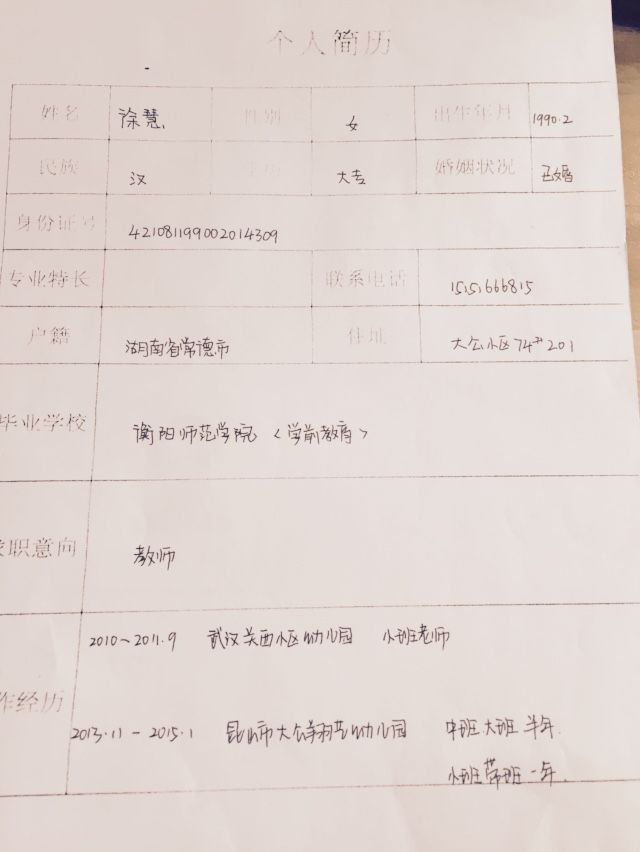 个人简历
姓名 涂慧 性别 女 出生年月 1990.2
民族 汉 学历 大专 婚姻状况 已婚
身份证号 421081199002014309
专业特长 联系电话 15151666815
户籍 湖南省常德市 住址 大公小区74# 201
毕业学校 衡阳师范学院 <学前教育>
求职意向 教师
2010~2011.9 武汉关西小区幼儿园 小班老师
作经历
2013.11-2015.1 昆山市大公翔艺幼儿园 中班大班半年.
小班带班一年.